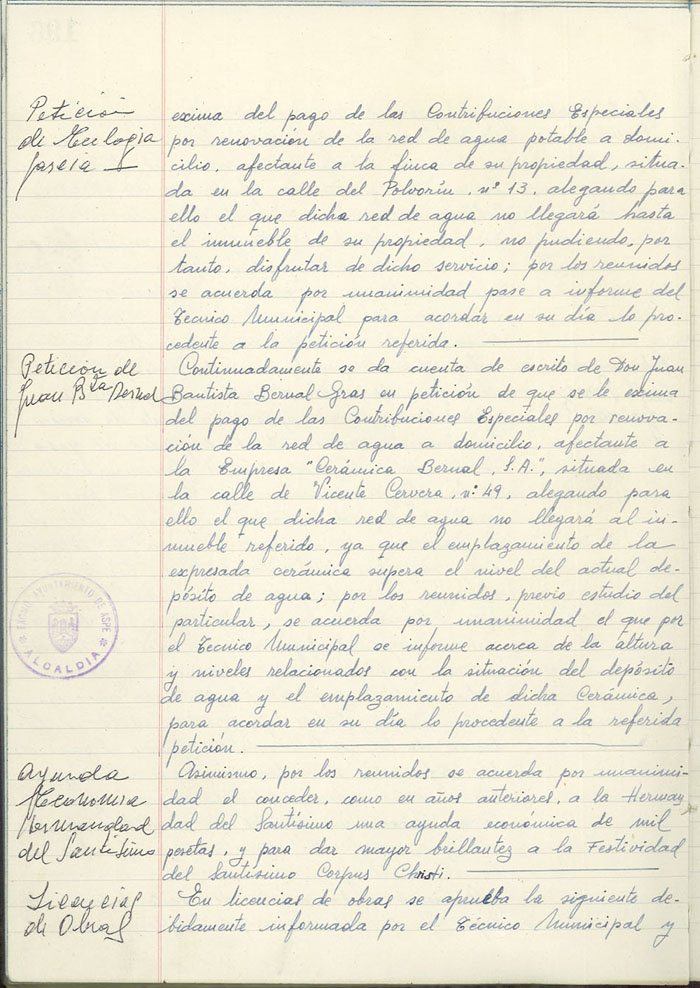 Petición
de Eulogia
García
exima del pago de las Contribuciones Especiales
por renovación de la red de agua potable a domi-
cilio, afectante a la finca de su propiedad, situa-
da en la calle del Polvorín, nº 13, alegando para
ello el que dicha red de agua no llegará hasta
el inmueble de su propiedad, no pudiendo, por
tanto, disfrutar de dicho servicio; por los reunidos
se acuerda por unanimidad pase a informe del
Tecnico Municipal para acordar en su día lo pro-
cedente a la petición referida.
Petición de
Juan Bta Bernal
Continuadamente se da cuenta de escrito de Don Juan
Bautista Bernal Gras en petición de que se le exima
del pago de las Contribuciones Especiales por renova-
ción de la red de agua a domicilio, afectante a
la Empresa "Cerámica Bernal, S.A.", situada en
la calle de "Vicente Cervera, nº 49, alegando para
ello el que dicha red de agua no llegará al in-
mueble referido, ya que el emplazamiento de la
expresada cerámica supera el nivel del actual de-
pósito de agua; por los reunidos, previo estudio del
particular, se acuerda por unanimidad el que por
el Tecnico Municipal se informe acerca de la altura
y niveles relacionados con la situación del depósito
de agua y el emplazamiento de dicha Cerámica,
para acordar en su día lo procedente a la referida
petición.
AYUNTAMIENTO DE ASPE
ALCALDIA
Ayuda
Economica
Hermandad
del Santísimo
Asimismo, por los reunidos se acuerda por unanimi-
dad el conceder, como en años anteriores, a la Herman
dad del Santísimo una ayuda económica de mil
pesetas, y para dar mayor brillantez a la Festividad
del Santísimo Corpus Christi.
Licencias
de Obras
En licencias de obras se aprueba la siguiente de-
bidamente informada por el Técnico Municipal y